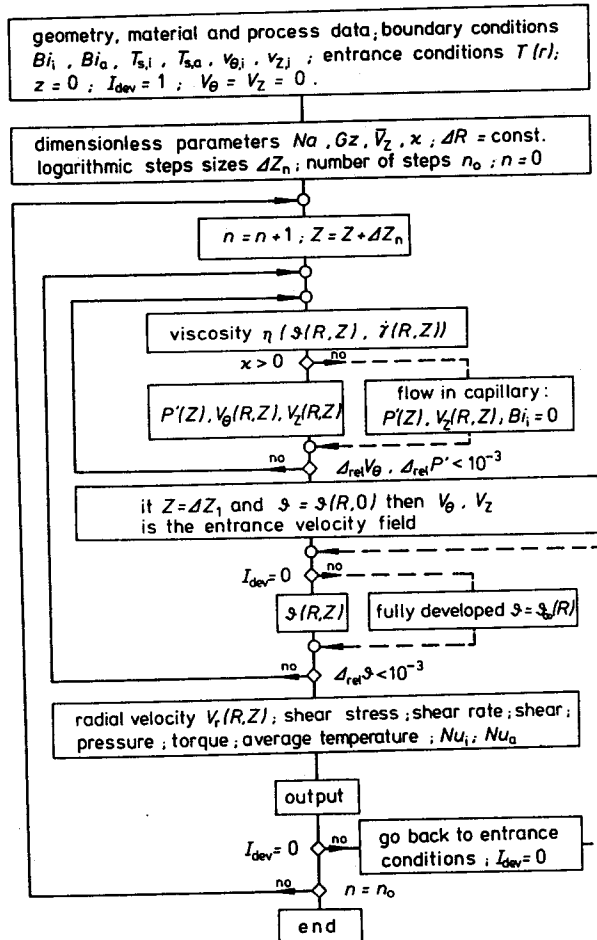 geometry, material and process data; boundary conditions
Bi_i , Bi_a , T_s,i , T_s,a , v_θ,i , v_z,i ; entrance conditions T(r);
z = 0 ; I_dev = 1 ; V_θ = V_Z = 0 .
dimensionless parameters Na, Gz, V̄_Z, ϰ ; ΔR = const.
logarithmic steps sizes ΔZ_n ; number of steps n_o ; n = 0
n = n+1 ; Z = Z+ΔZ_n
viscosity η (ϑ(R,Z), γ̇(R,Z))
ϰ > 0
no
P'(Z), V_θ(R,Z), V_Z(R,Z)
flow in capillary :
P'(Z), V_Z(R,Z), Bi_i = 0
no
Δ_rel V_θ , Δ_rel P' < 10⁻³
it Z = ΔZ_1 and ϑ = ϑ(R,0) then V_θ , V_Z
is the entrance velocity field
I_dev = 0
no
ϑ(R,Z)
fully developed ϑ = ϑ_∞(R)
no
Δ_rel ϑ < 10⁻³
radial velocity V_r(R,Z) ; shear stress ; shear rate ; shear ;
pressure ; torque ; average temperature ; Nu_i ; Nu_a
output
I_dev = 0
no
go back to entrance
conditions ; I_dev = 0
no
n = n_o
end